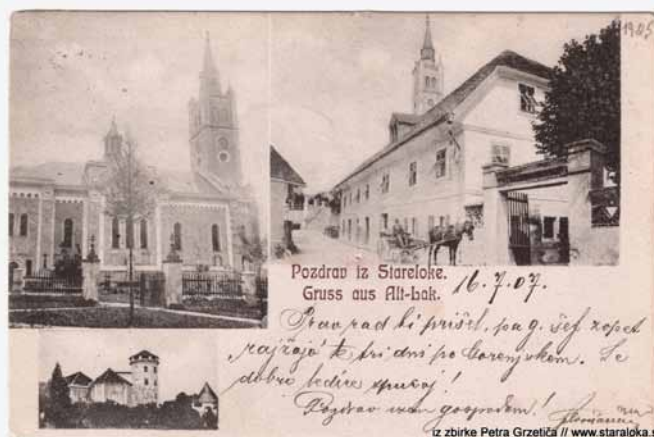 1905
Pozdrav iz Stareloke.
Gruss aus Alt-Lak.
16.7.07.
Prav rad bi prišel, pa g. šef zopet
te tri dni po Gorenjskem. Le
dobro
Pozdrav vsem gospodom!
iz zbirke Petra Grzetiča // www.staraloka.s